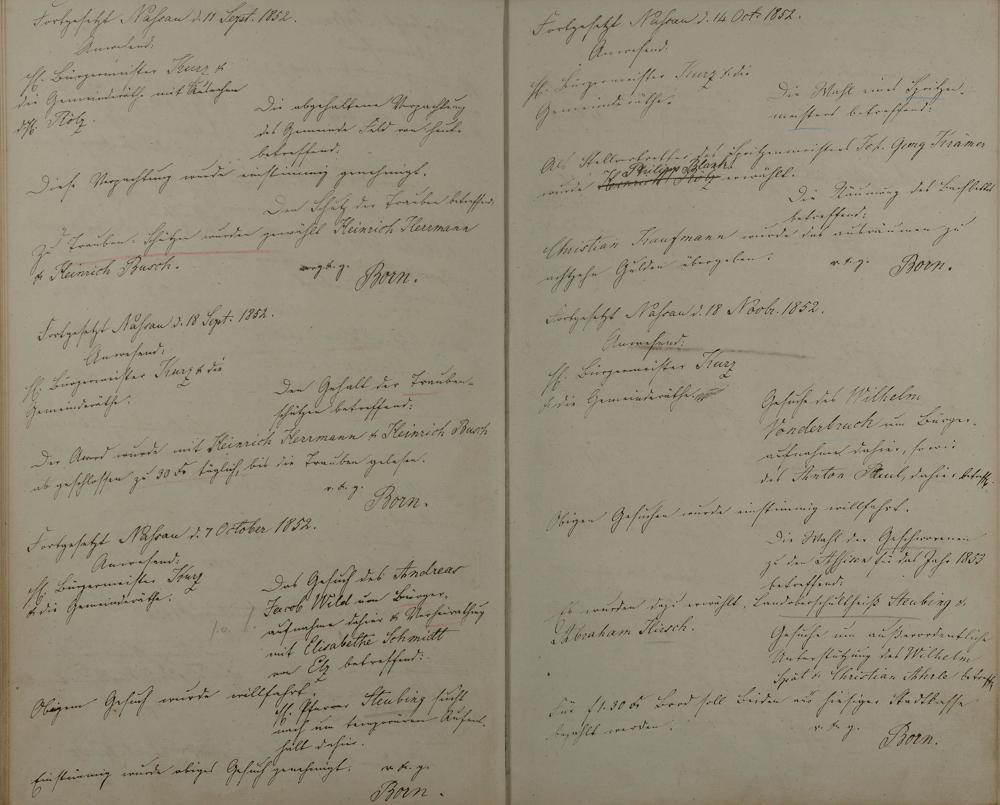 Fortgesetzt Nassau d. 11 Sept. 1852.
Anwesend:
H. Bürgermeister Kurz &
die Gemeinderäthe mit
d. H. Stolz.
Die abgehaltene Verpachtung
des Gemeinde Feld von heute
betreffend:
Diese Verpachtung wurde einstimmig genehmigt.
Den Schutz der Trauben betreffend:
Zu Trauben-Schützen wurden gewählt Heinrich Herrmann
& Heinrich Busch.
v. g. g.
Born.
Fortgesetzt Nassau d. 18 Sept. 1852.
Anwesend:
H. Bürgermeister Kurz & die
Gemeinderäthe.
Den Gehalt der Trauben-
schützen betreffend:
Der Accord wurde mit Heinrich Herrmann & Heinrich Busch
abgeschlossen zu 30 Xr täglich, bis die Trauben gelesen.
v. g. g.
Born.
Fortgesetzt Nassau d. 7 October 1852.
Anwesend:
H. Bürgermeister Kurz
& die Gemeinderäthe.
Das Gesuch des Andreas
Jacob Wild um Bürger-
aufnahme dahier & Verheirathung
mit Elisabethe Schmidt
von Elz betreffend:
Obigem Gesuch wurde willfahrt.
H. Pfarrer Steubing sucht
nach um temporären Aufent-
halt dahier.
Einstimmig wurde obiges Gesuch genehmigt.
v. g. g.
Born.
Fortgesetzt Nassau d. 14 Octr. 1852.
Anwesend:
H. Bürgermeister Kurz & die
Gemeinderäthe.
Die Wahl eines Spritzen-
meisters betreffend:
Als Stellvertretter des Spritzenmeisters Joh. Georg Krämer
Philipp Blank
wurde Heinrich Stolz erwählt.
Die Räumung des Bachbettes
betreffend:
Christian Kaufmann wurde das ausräumen zu
achtzehn Gulden übergeben.
v. g. g.
Born.
Fortgesetzt Nassau d. 18 Novbr. 1852.
Anwesend:
H. Bürgermeister Kurz
& die Gemeinderäthe.
Gesuche des Wilhelm
Vonderbruch um Bürger-
aufnahme dahier, sowie
des Anton Paul, dahier betreff.
Obigen Gesuchen wurde einstimmig willfahrt.
Die Wahl der Geschworenen
zu den Assisen für das Jahr 1853
betreffend:
Es wurden dazu erwählt, Landoberschultheiß Steubing &
Abraham Hirsch.
Gesuche um außerordentliche
Unterstützung des Wilhelm
Spät & Christian betreff.
Für f 1.30 Xr Brod soll Beiden aus hiesiger Stadtkasse
bezahlt werden.
v. g. g.
Born.